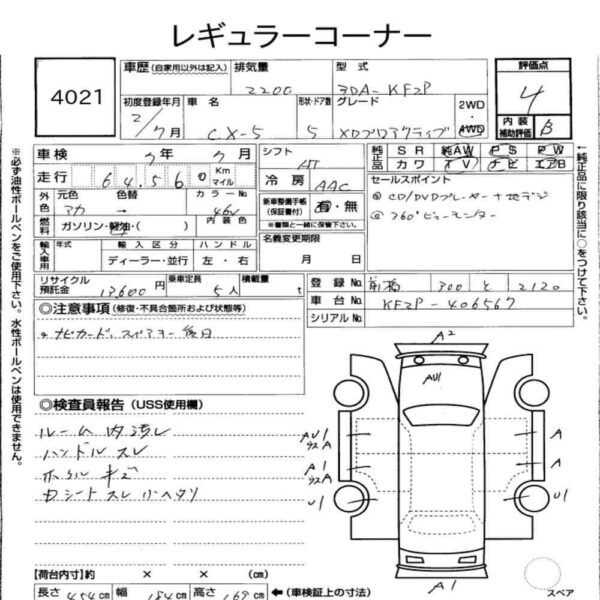 レギュラーコーナー
4021
車歴 (自家用以外は記入) 排気量 型式 評価点
2200 3DA-KF2P 4
初度登録年月 車名 形状・ドア数 グレード 2WD・4WD 内装補助評価 B
2/7月 CX-5 5 XDプロアクティブ
車検 7年7月 シフト AT 純正品 SR 純AW PS PW
走行 64,560 Km マイル 冷房 AAC カワ TV ナビ エアB
外色 元色 色替 カラーNo. 新車整備手帳(保証書付) 有・無 セールスポイント
アカ → 46V ※書類と一緒に保管下さい。 ①CD/DVDプレーヤー+地デジ
燃料 ガソリン・軽油・( ) 内装色 名義変更期限 ②360°ビューモニター
輸入車用 年式 輸入区分 ハンドル 月 日
ディーラー・並行 左・右
リサイクル預託金 13,600円 乗車定員 5人 積載量 t 登録No. 前橋 300 と 2120
車台No. KF2P-406567
シリアルNo.
◎注意事項 (修復・不具合箇所および状態等)
*ナビカード、スペアキー後日
◎検査員報告 (USS使用欄)
ルーム内汚レ
ハンドルスレ
シートスレ小ヘタリ
A2
AU1
AU1 ウスA
A1 ウスA
U1
A
A
U1
A1
スペア
【荷台内寸】約 × × (cm)
長さ 454cm 幅 184cm 高さ 169cm ←(車検証上の寸法)
※必ず油性ボールペンをご使用下さい。水性ボールペンは使用できません。
←純正品に限り該当に○をつけて下さい。